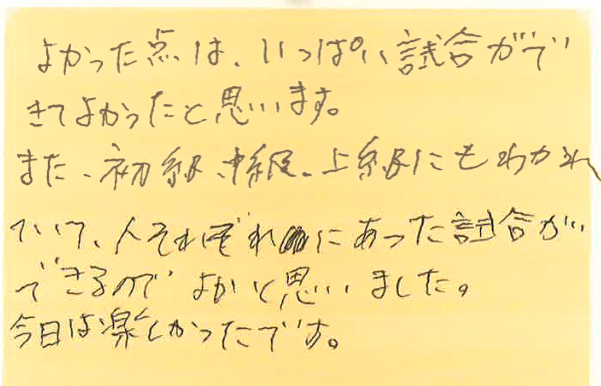 よかった点は、いっぱい試合がで
きてよかったと思います。
また、初級、中級、上級にもわかれ
ていて、人それぞれにあった試合が
できるのでよかいと思いました。
今日は楽しかったです。